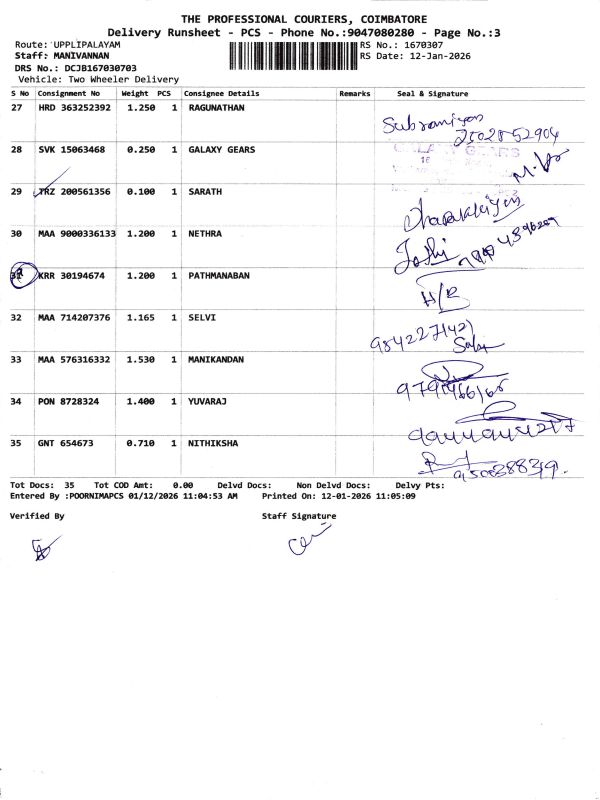 THE PROFESSIONAL COURIERS, COIMBATORE
Delivery Runsheet - PCS - Phone No.:9047080280 - Page No.:3
Route: UPPLIPALAYAM RS No.: 1670307
Staff: MANIVANNAN RS Date: 12-Jan-2026
DRS No.: DCJB167030703
Vehicle: Two Wheeler Delivery
S No Consignment No Weight PCS Consignee Details Remarks Seal & Signature
27 HRD 363252392 1.250 1 RAGUNATHAN
28 SVK 15063468 0.250 1 GALAXY GEARS
GALAXY GEARS
29 TRZ 200561356 0.100 1 SARATH
30 MAA 9000336133 1.200 1 NETHRA
Joshi
KRR 30194674 1.200 1 PATHMANABAN
H/R
32 MAA 714207376 1.165 1 SELVI
33 MAA 576316332 1.530 1 MANIKANDAN
34 PON 8728324 1.400 1 YUVARAJ
35 GNT 654673 0.710 1 NITHIKSHA
Tot Docs: 35 Tot COD Amt: 0.00 Delvd Docs: Non Delvd Docs: Delvy Pts:
Entered By :POORNIMAPCS 01/12/2026 11:04:53 AM Printed On: 12-01-2026 11:05:09
Verified By Staff Signature